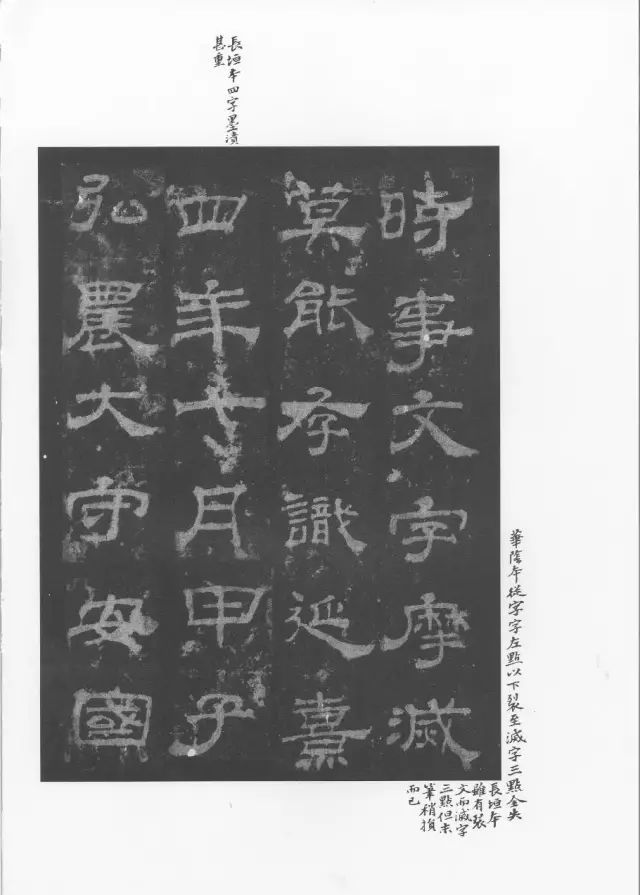 長垣本四字墨漬
甚重
時事文字摩滅
莫能存識延熹
四年七月甲子
弘農大守安國
華陰本從字字左點以下裂至滅字三點全失
長垣本
雖有裂
文而滅字
三點但未
筆稍損
而已